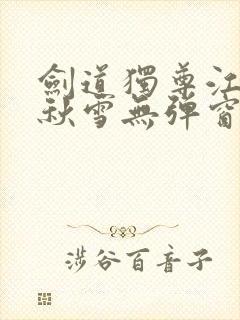 劍道獨尊江
秋雪無彈窗
涉谷百音子